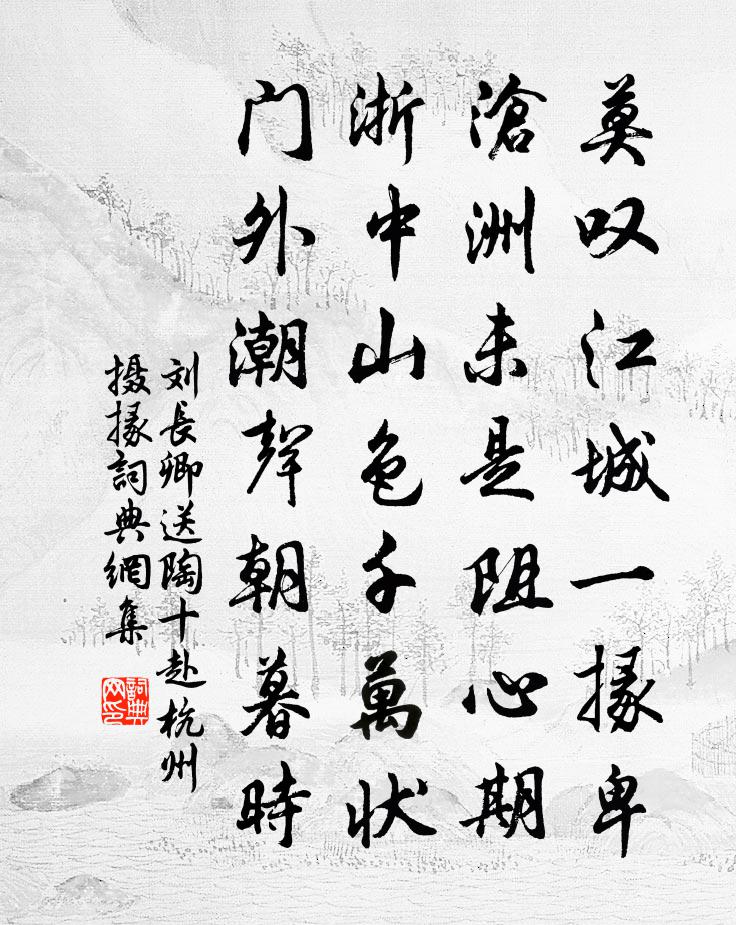 莫叹江城一掾卑
滄洲未是阻心期
浙中山色千萬状
门外潮聲朝暮時
刘長卿送陶十赴杭州
摄掾詞典網集
詞典网印